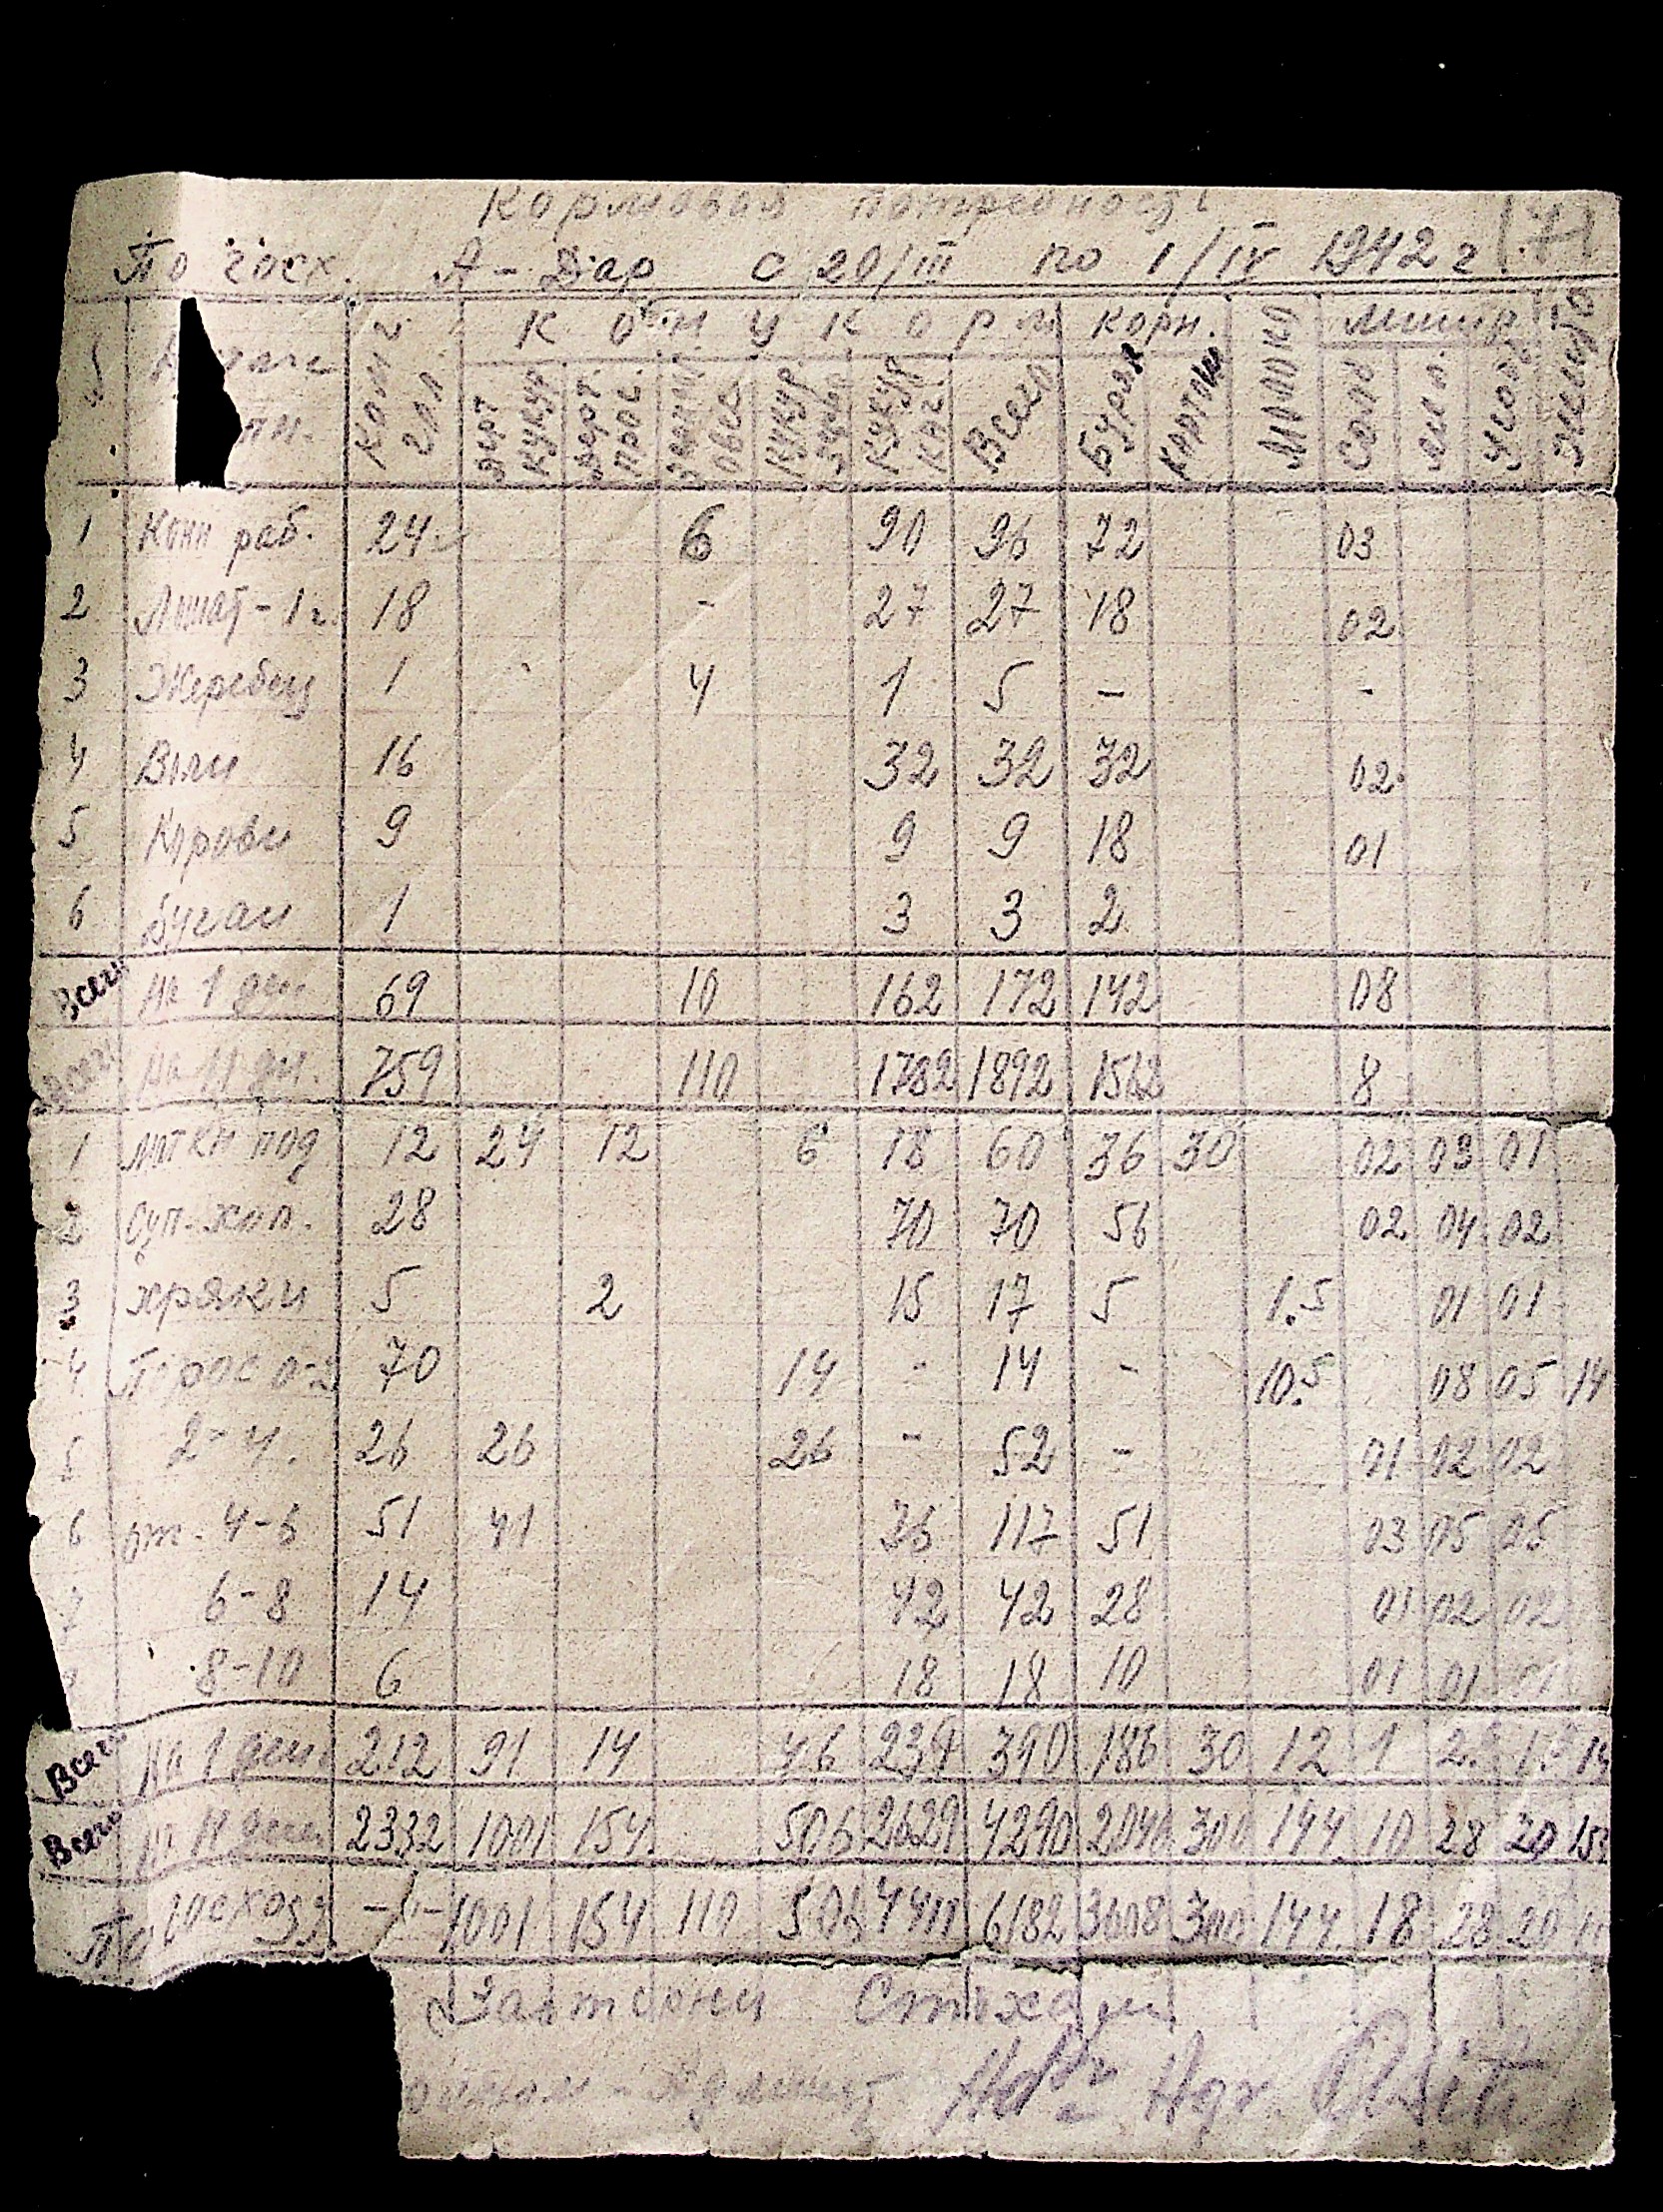 Кормовая потребность
По госх. А-Дар с 20/III по 1/IV 1942 г (7)
Конц корм корн. Молоко
Кол. гол дерт кукур дерт. прос. овес кукур. кукур кач. Всего Бурак картош соль мел
1 Кони раб. 24 6 90 96 72 03
2 Лошат-1 г. 18 - 27 27 18 02
3 Жеребец 1 4 1 5 - -
4 Волы 16 32 32 32 02
5 Коровы 9 9 9 18 01
6 Бугаи 1 3 3 2
Всего На 1 ден. 69 10 162 172 142 08
Всего На 11 дн. 759 110 1782 1892 1562 8
1 Матки под 12 24 12 6 18 60 36 30 02 03 01
2 Суп-хол. 28 70 70 56 02 04 02
3 хряки 5 2 15 17 5 1.5 01 01
4 Порос 0-2 70 14 - 14 - 10.5 08 05 14
5 2-4. 26 26 26 - 52 - 01 02 02
6 от. 4-6 51 41 76 117 51 03 05 05
7 6-8 14 42 42 28 01 02 02
8-10 6 18 18 10 01 01
Всего На 1 день 212 91 14 46 239 390 186 30 12 1 2. 1. 14
Всего На 11 дней 2332 1001 154 506 2629 4290 2046 300 144 10 28 20 154
По госходу -"- 1001 154 110 506 4411 6182 3608 300 144 18 28 20